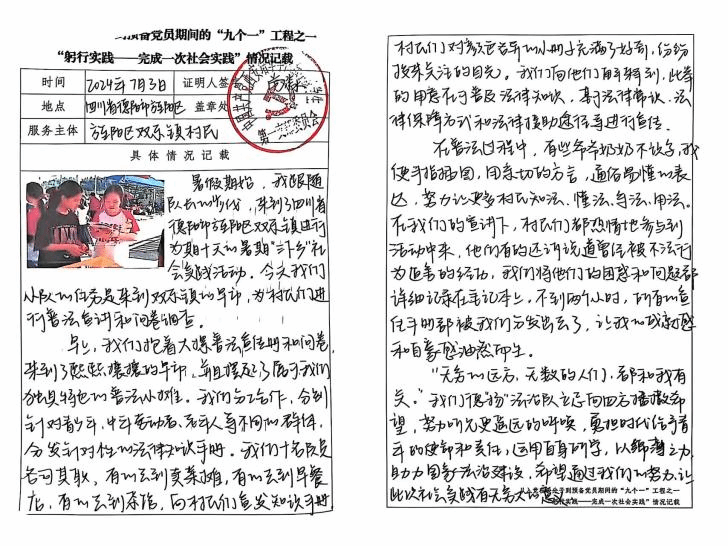 预备党员期间的“九个一”工程之一
“躬行实践——完成一次社会实践”情况记载
时间 2024年7月3日 证明人签
地点 四川省德阳市旌阳区 盖章处
服务主体 旌阳区双东镇村民
具体情况记载
暑假期始，我跟随
队长的步伐，来到了四川省
德阳市旌阳区双东镇进行
为期十天的暑期“三下乡”社
会实践活动，今天我们
小队的任务是来到双东镇的早市，为村民们进
行普法宣讲和问卷调查。
早上，我们抱着大摞普法宣传册和问卷，
来到了熙熙攘攘的早市，并且摆起了属于我们
独具特色的普法小摊。我们分工合作，分别
针对青少年、中年劳动者、老年人等不同的群体，
分发针对性的法律知识手册。我们十名队员
各司其职，有的去到卖菜摊，有的去到早餐
店，有的去到茶馆，向村民们宣发知识手册
村民们对颜色各异的小册子充满了好奇，纷纷
投来关注的目光。我们向他们解释到，此举
的用意在于普及法律知识，基于法律常识、法
律保障方式和法律援助途径等进行宣传。
在普法过程中，有些爷爷奶奶不识字，我
便手指插图，用亲切的方言，通俗易懂的表
达，努力让更多村民知法、懂法、守法、用法。
在我们的宣讲下，村民们都热情地参与到
活动中来，他们有的还讲说道曾经被不法行
为迫害的经历，我们将他们的困惑和问题都
详细记录在笔记本上，不到两个小时，所有的宣
传手册都被我们分发出去了，让我的成就感
和自豪感油然而生。
“无穷的远方，无数的人们，都和我有
关。”我们德“扬”法治队立志向四方播散希
望，努力听见更遥远的呼唤，勇担时代给予青
年的使命和责任，运用自身所学，以绵薄之力
助力国家法治建设，希望通过我们的努力，让
此次社会实践有无穷大的意
子到预备党员期间的“九个一”工程之一
实践——完成一次社会实践”情况记载